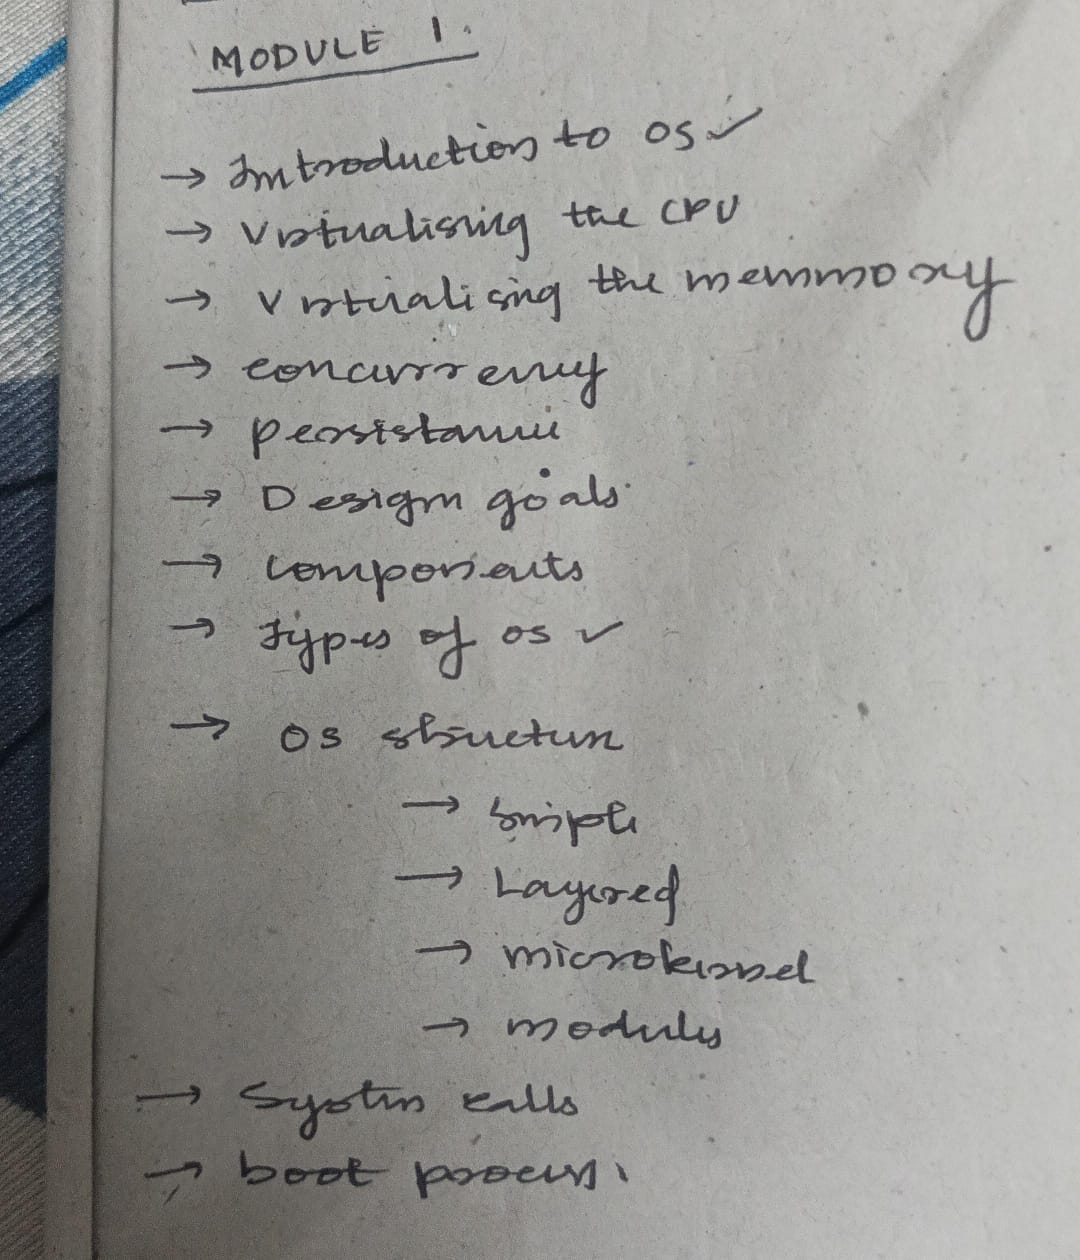 MODULE 1.
→ Introduction to OS ✓
→ Virtualising the CPU
→ Virtualising the memmory
→ concurrency
→ persistance
→ Design goals
→ components
→ Types of OS ✓
→ OS structure
→ Simple
→ Layered
→ microkernel
→ modules
→ System calls
→ boot process.